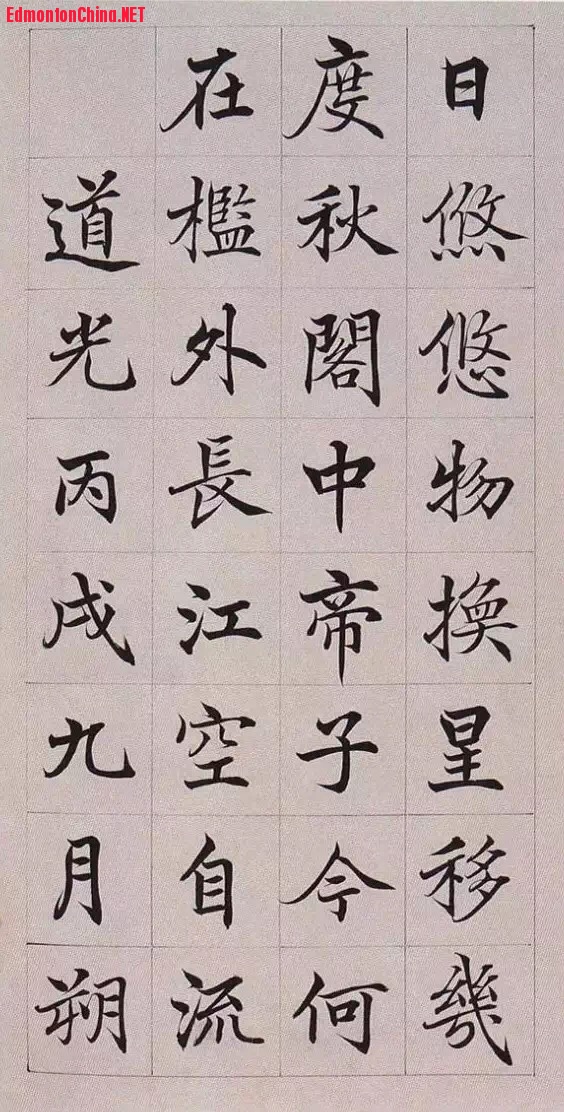 EdmontonChina.NET
日悠悠物換星移幾
度秋閣中帝子今何
在檻外長江空自流
道光丙戌九月朔